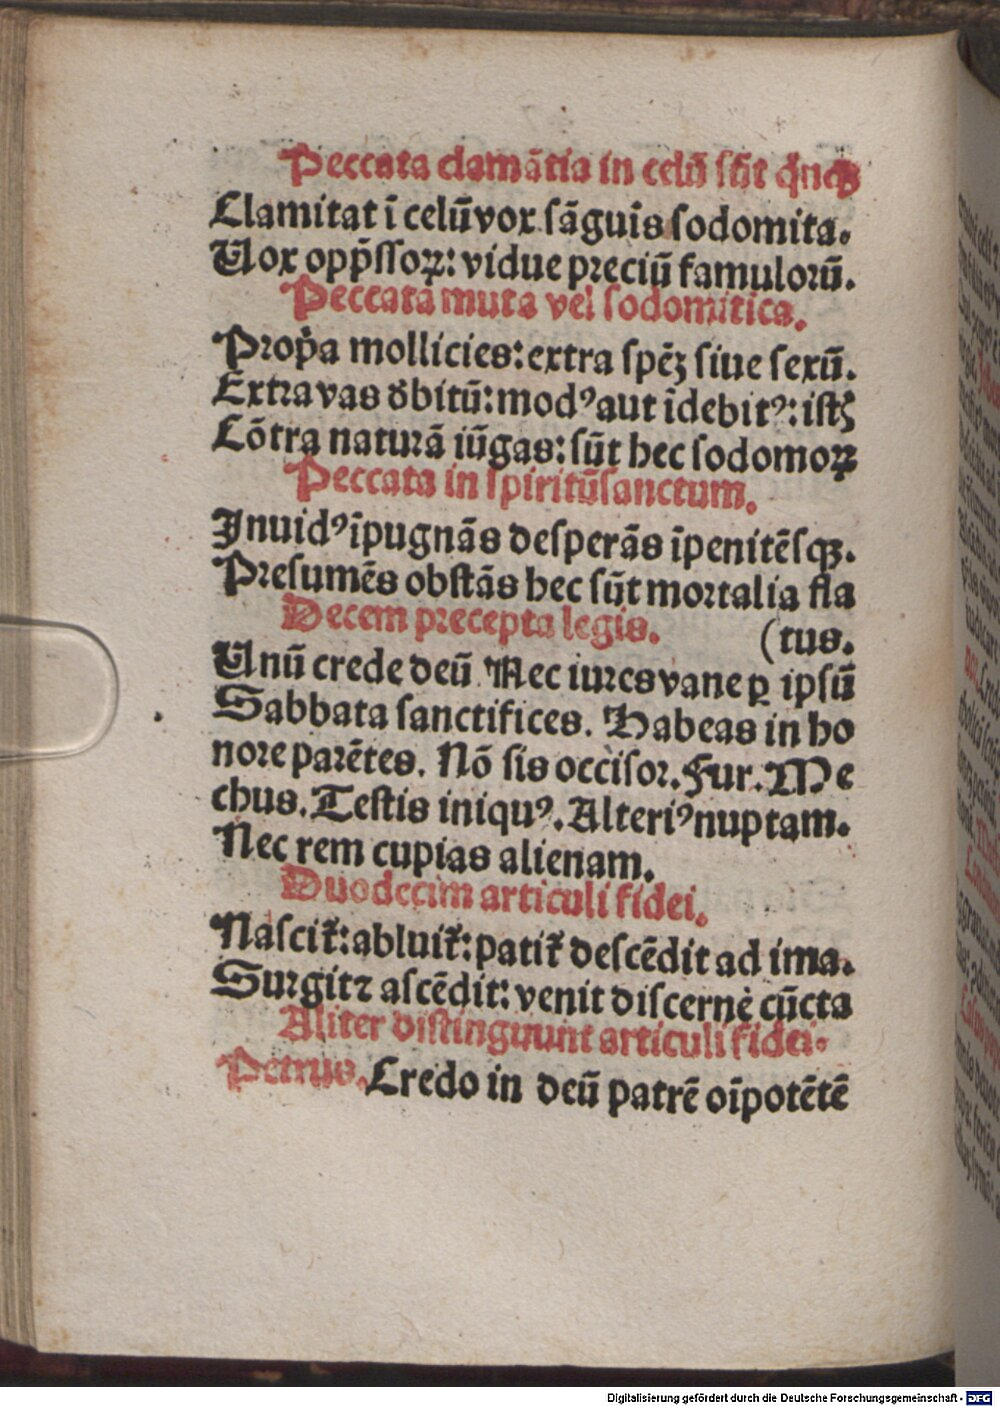 Peccata clamātia in celū sūt qͥnqꝫ
Clamitat ī celū vox sāguis sodomita.
Uox opp̄ssoꝝ: vidue preciū famuloꝛū.
Peccata muta vel sodomitica.
Prop̄a mollicies: extra spēꝫ siue sexū.
Extra vas dbitū: modꝰ aut īdebitꝰ: istꝫ
Cōtra naturā iūgas: sūt hec sodomoꝝ
Peccata in spiritū sanctum.
Inuidꝰ īpugnās desperās īpenitēsqꝫ.
Presumēs obstās hec sūt moꝛtalia fla
Decem precepta legis. (tus.
Unū crede deū Nec iures vane ꝑ ipsū
Sabbata sanctifices. Habeas in ho
nore parētes. Nō sis occisoꝛ. Fur. Me
chus. Testis iniquꝰ. Alteriꝰ nuptam.
Nec rem cupias alienam.
Duodecim articuli fidei.
Nascit᷑: abluit᷑: patit᷑ descēdit ad ima.
Surgit ⁊ ascēdit: venit discernē cūcta
Aliter distinguunt articuli fidei.
Petrus. Credo in deū patrē oīpotētē
Digitalisierung gefördert durch die Deutsche Forschungsgemeinschaft - DFG